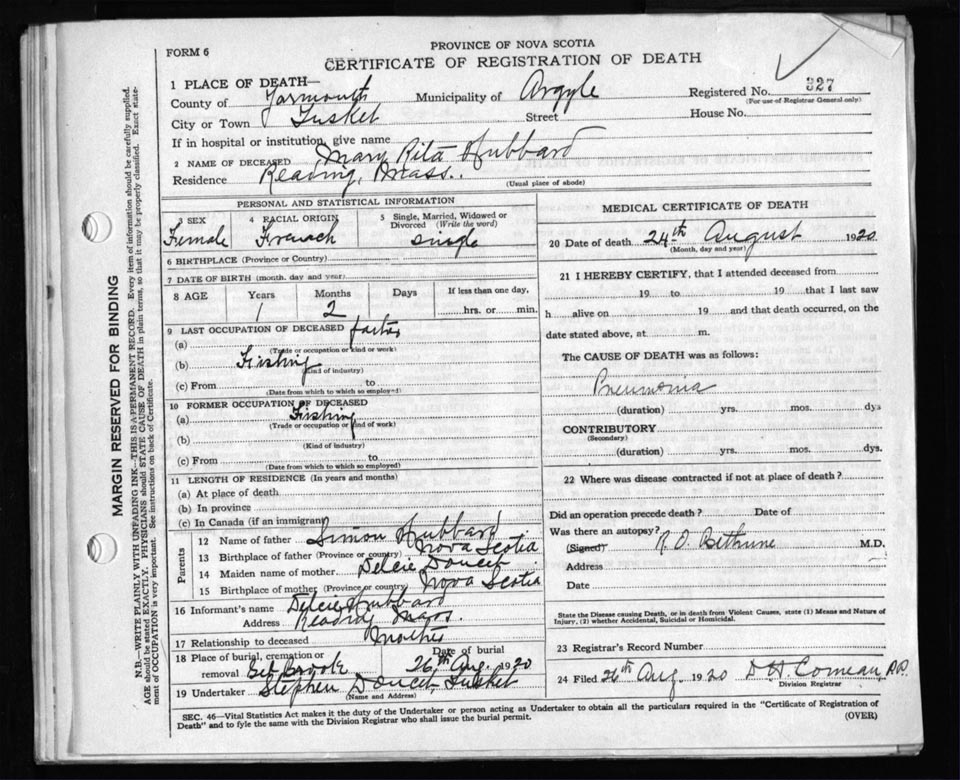 FORM 6
PROVINCE OF NOVA SCOTIA
CERTIFICATE OF REGISTRATION OF DEATH
1 PLACE OF DEATH—
County of Yarmouth Municipality of Argyle Registered No. 327
(For use of Registrar General only)
City or Town Tusket Street House No.
If in hospital or institution, give name
2 NAME OF DECEASED Mary Rita Hubbard
Residence Reading, Mass.
(Usual place of abode)
PERSONAL AND STATISTICAL INFORMATION
3 SEX 4 RACIAL ORIGIN 5 Single, Married, Widowed or Divorced (Write the word)
Female French single
6 BIRTHPLACE (Province or Country)
7 DATE OF BIRTH (month, day and year)
8 AGE Years Months Days If less than one day,
1 2 hrs. or min.
9 LAST OCCUPATION OF DECEASED
(a)
(Trade or occupation or kind of work)
(b) Fishing
(Kind of industry)
(c) From to
(Date from which to which so employed)
10 FORMER OCCUPATION OF DECEASED
(a) Fishing
(Trade or occupation or kind of work)
(b)
(Kind of industry)
(c) From to
(Date from which to which so employed)
11 LENGTH OF RESIDENCE (In years and months)
(a) At place of death
(b) In province
(c) In Canada (if an immigrant)
Parents
12 Name of father Simon Hubbard
13 Birthplace of father (Province or country) Nova Scotia
14 Maiden name of mother Delcie Doucet
15 Birthplace of mother (Province or country) Nova Scotia
16 Informant's name Delcie Hubbard
Address Reading Mass.
17 Relationship to deceased Mother
18 Place of burial, cremation or removal Eel Brook Date of burial 26th Aug. 1920
19 Undertaker Stephen Doucet, Tusket
(Name and Address)
MEDICAL CERTIFICATE OF DEATH
20 Date of death 24th August 1920
(Month, day and year)
21 I HEREBY CERTIFY, that I attended deceased from
19 to 19 that I last saw
h alive on 19 and that death occurred, on the
date stated above, at m.
The CAUSE OF DEATH was as follows:
Pneumonia
(duration) yrs. mos. dys
CONTRIBUTORY
(Secondary)
(duration) yrs. mos. dys.
22 Where was disease contracted if not at place of death?
Did an operation precede death? Date of
Was there an autopsy?
(Signed) R. O. Bethune M.D.
Address
Date
State the Disease causing Death, or in death from Violent Causes, state (1) Means and Nature of
Injury, (2) whether Accidental, Suicidal or Homicidal.
23 Registrar's Record Number
24 Filed 26th Aug. 1920 D H. Comeau P.P.
Division Registrar
SEC. 46—Vital Statistics Act makes it the duty of the Undertaker or person acting as Undertaker to obtain all the particulars required in the "Certificate of Registration of
Death" and to fyle the same with the Division Registrar who shall issue the burial permit. (OVER)
MARGIN RESERVED FOR BINDING
N.B.—WRITE PLAINLY WITH UNFADING INK—THIS IS A PERMANENT RECORD. Every item of information should be carefully supplied.
AGE should be stated EXACTLY. PHYSICIANS should STATE CAUSE OF DEATH in plain terms, so that it may be properly classified. Exact state-
ment of OCCUPATION is very important. See instructions on back of Certificate.